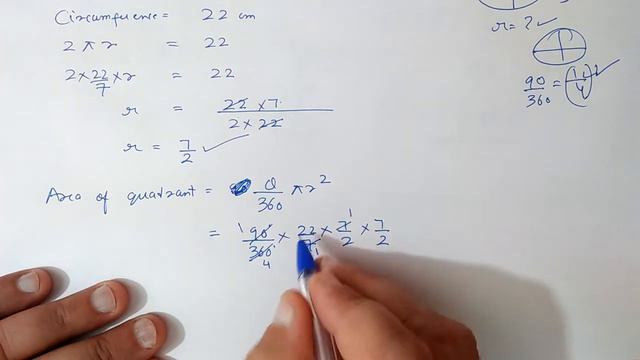 Circumference = 22 cm
2 π r = 22
2 × 22/7 × r = 22
r = 22 × 7 / 2 × 22
r = 7/2 ✓
Area of quadrant = θ/360 π r²
= 1 90/360 4 × 22/7 1 × 7 1/2 × 7/2
r = ? ✓
90/360 = 1/4 ✓